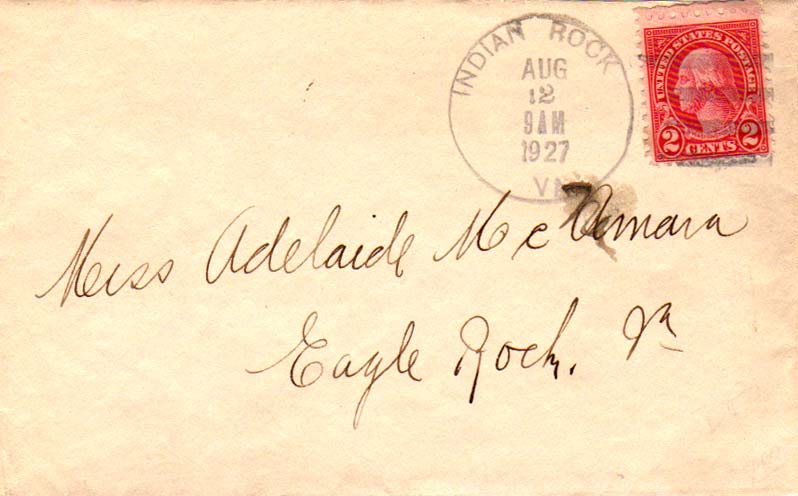 INDIAN ROCK
AUG
12
9 AM
1927
VA
UNITED STATES POSTAGE
2 CENTS 2
Miss Adelaide McNamara
Eagle Rock, Va